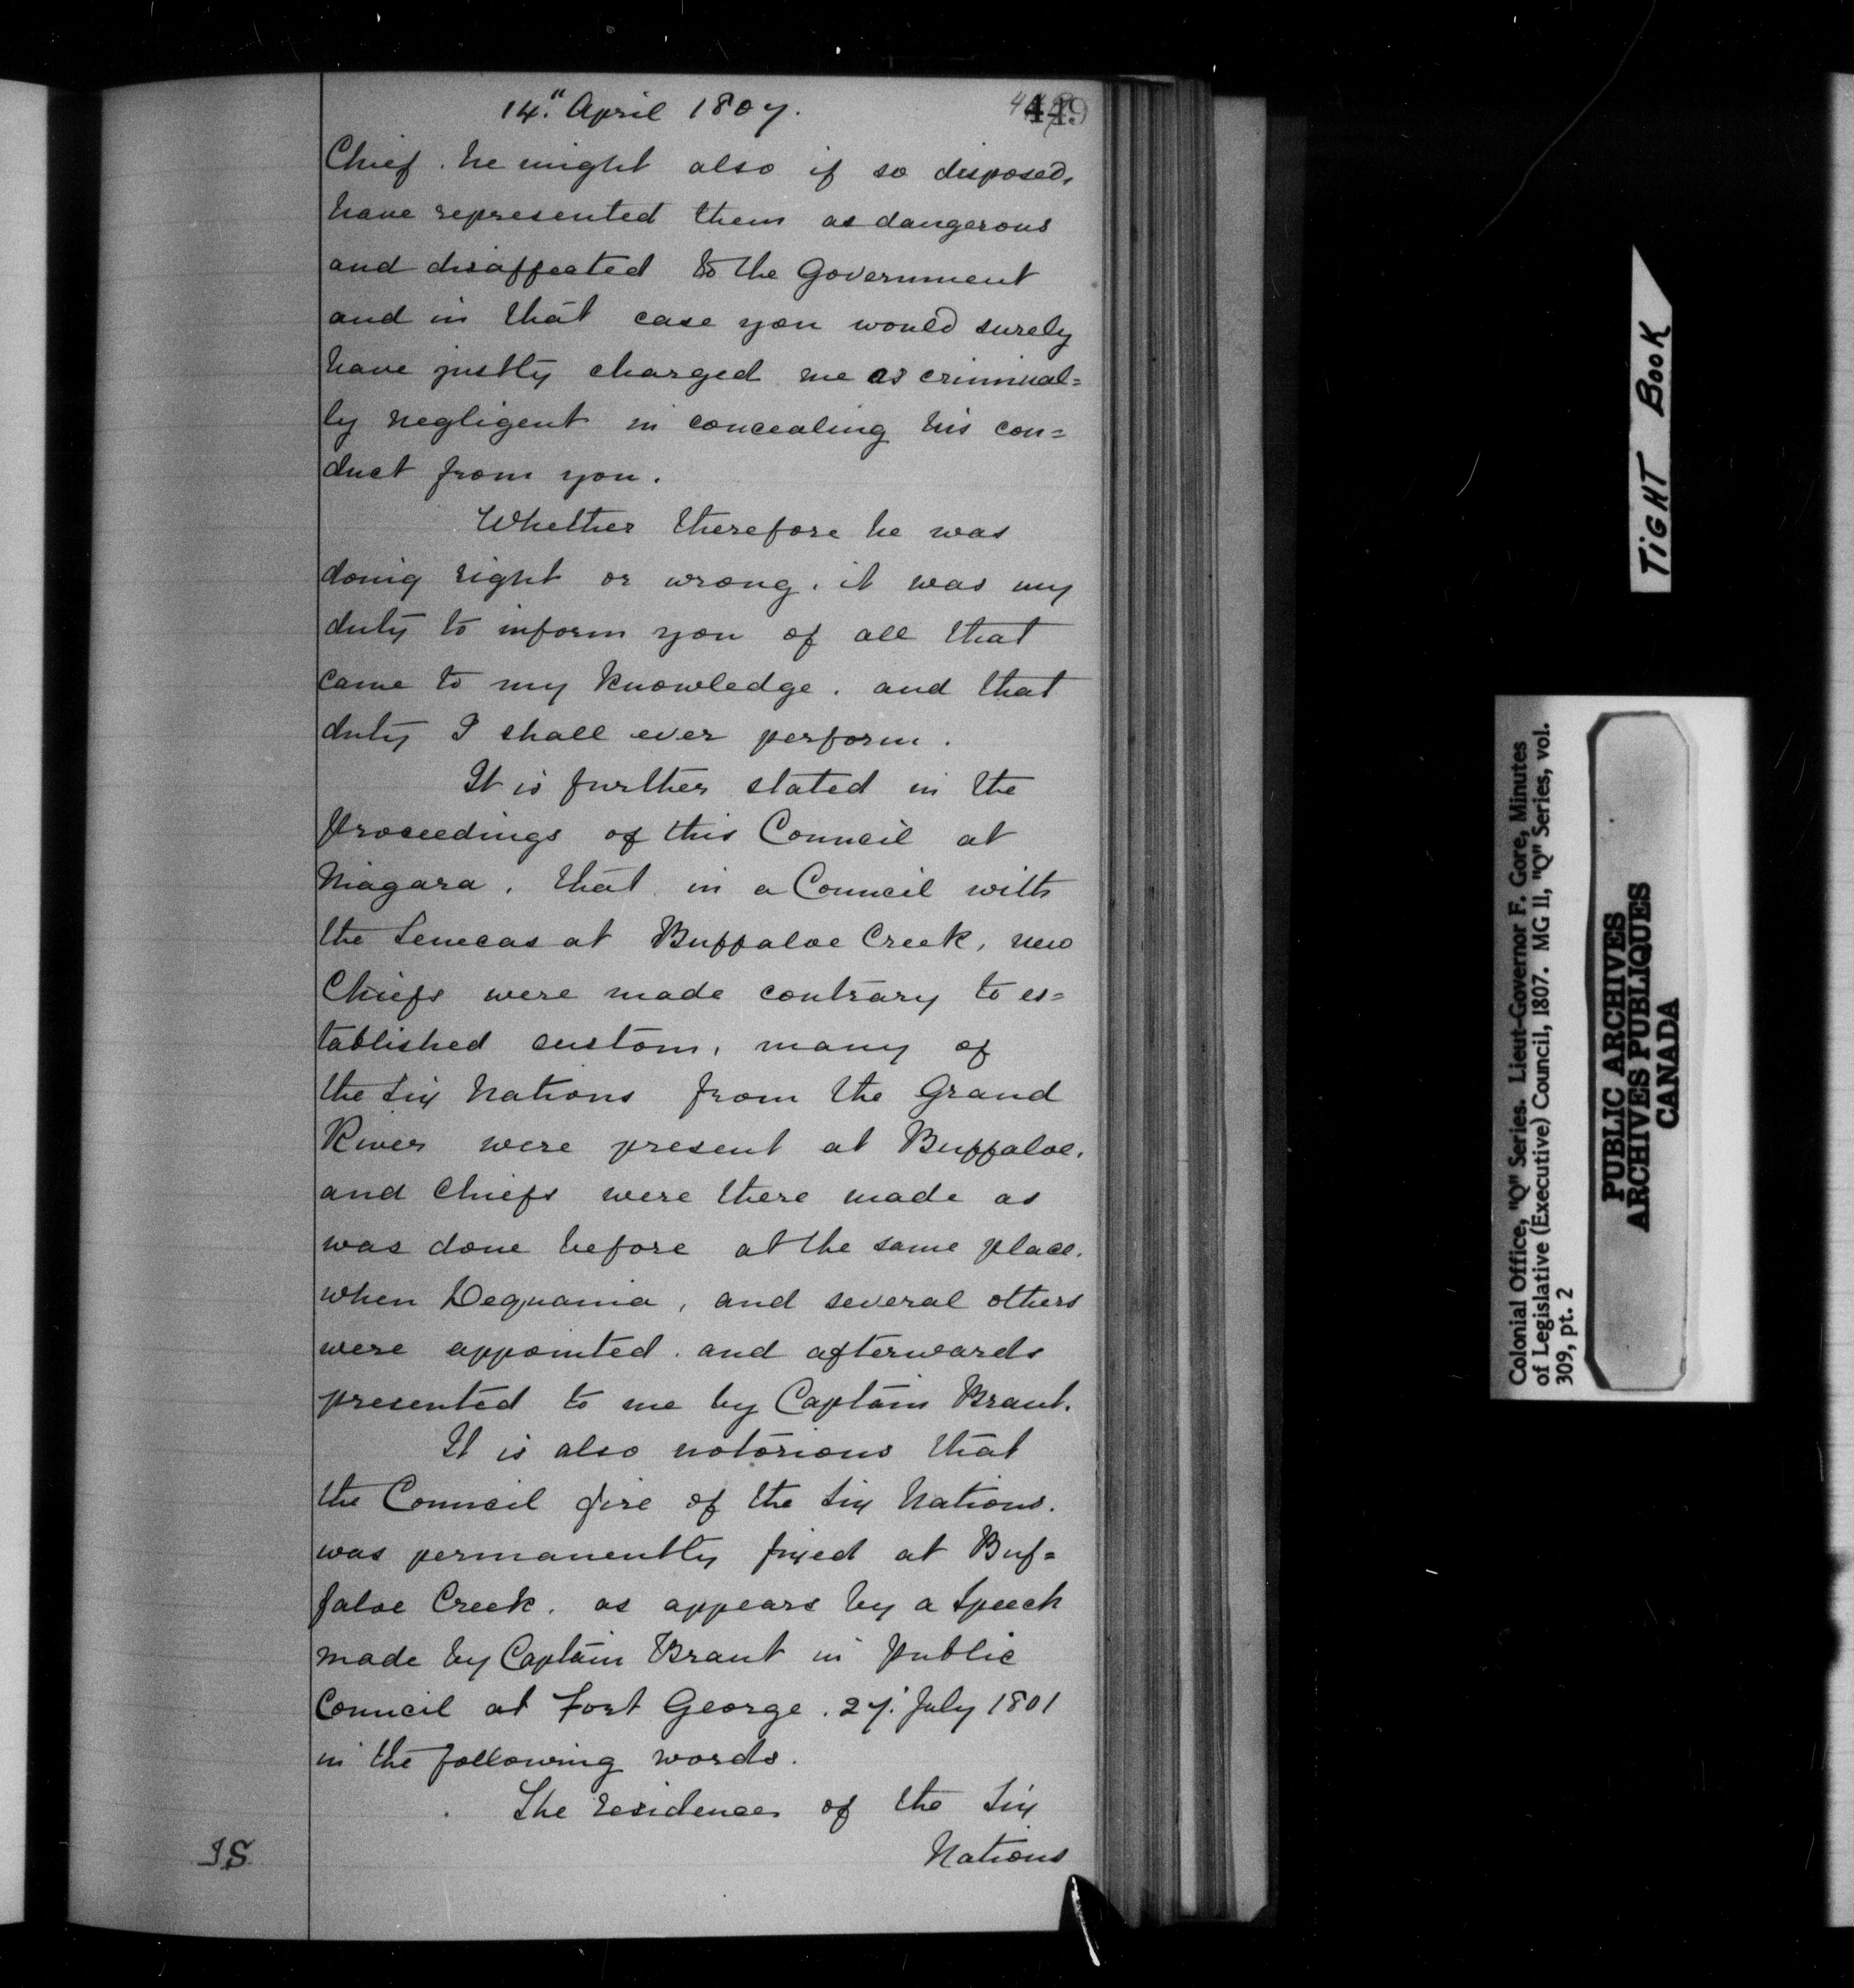 14." April 1807.
449
Chief. he might also if so disposed,
have represented them as dangerous
and disaffected to the Government
and in that case you would surely
have justly charged me as criminal=
ly negligent in concealing his con=
duct from you.
Whether therefore he was
doing right or wrong. it was my
duty to inform you of all that
came to my knowledge. and that
duty I shall ever perform.
It is further stated in the
proceedings of this Council at
Niagara. that in a Council with
the Senecas at Buffaloe Creek, new
Chiefs were made contrary to es=
tablished custom, many of
the Six Nations from the Grand
River were present at Buffaloe.
and Chiefs were there made as
was done before at the same place.
when Dequania, and several others
were appointed. and afterwards
presented to me by Captain Brant.
It is also notorious that
the Council fire of the Six Nations.
was permanently fixed at Buf=
faloe Creek. as appears by a Speech
made by Captain Brant in public
Council at Fort George. 27. July 1801
in the following words.
The residences of the Six
Nations
IS
TIGHT BOOK
Colonial Office, "Q" Series. Lieut-Governor F. Gore, Minutes
of Legislative (Executive) Council, 1807. MG 11, "Q" Series, vol.
309, pt. 2
PUBLIC ARCHIVES
ARCHIVES PUBLIQUES
CANADA